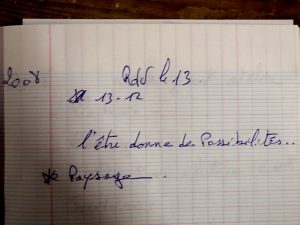 2008
Rdv le 13.
13-12
l'être donne des Possibilités..
* Paysage.